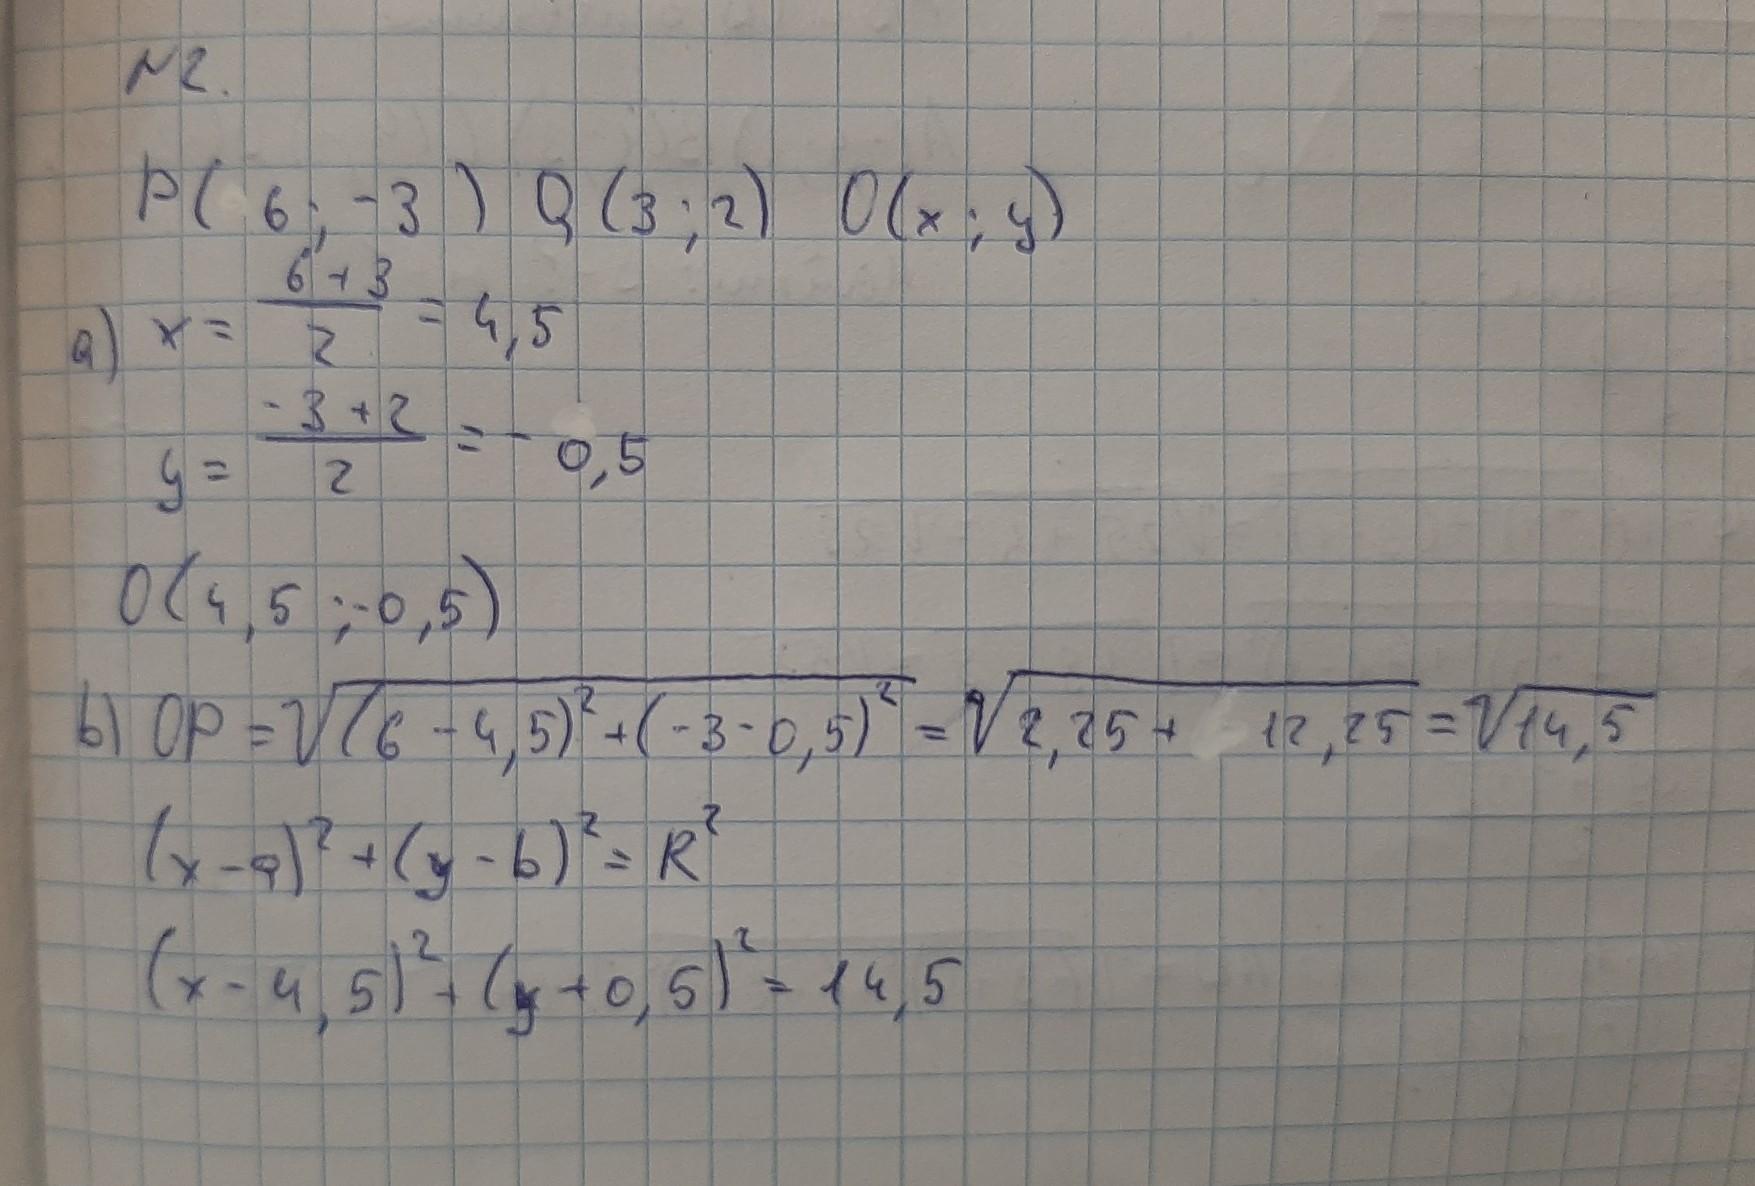 №2.
P( 6; -3 ) Q (3 ; 2) O(x ; y)
a) x = (6 + 3)/2 = 4,5
y = (-3 + 2)/2 = - 0,5
O(4,5 ;-0,5)
b) OP = √((6 - 4,5)² + (-3 - 0,5)²) = √(2,25 + 12,25) = √14,5
(x - a)² + (y - b)² = R²
(x - 4,5)² + (y + 0,5)² = 14,5